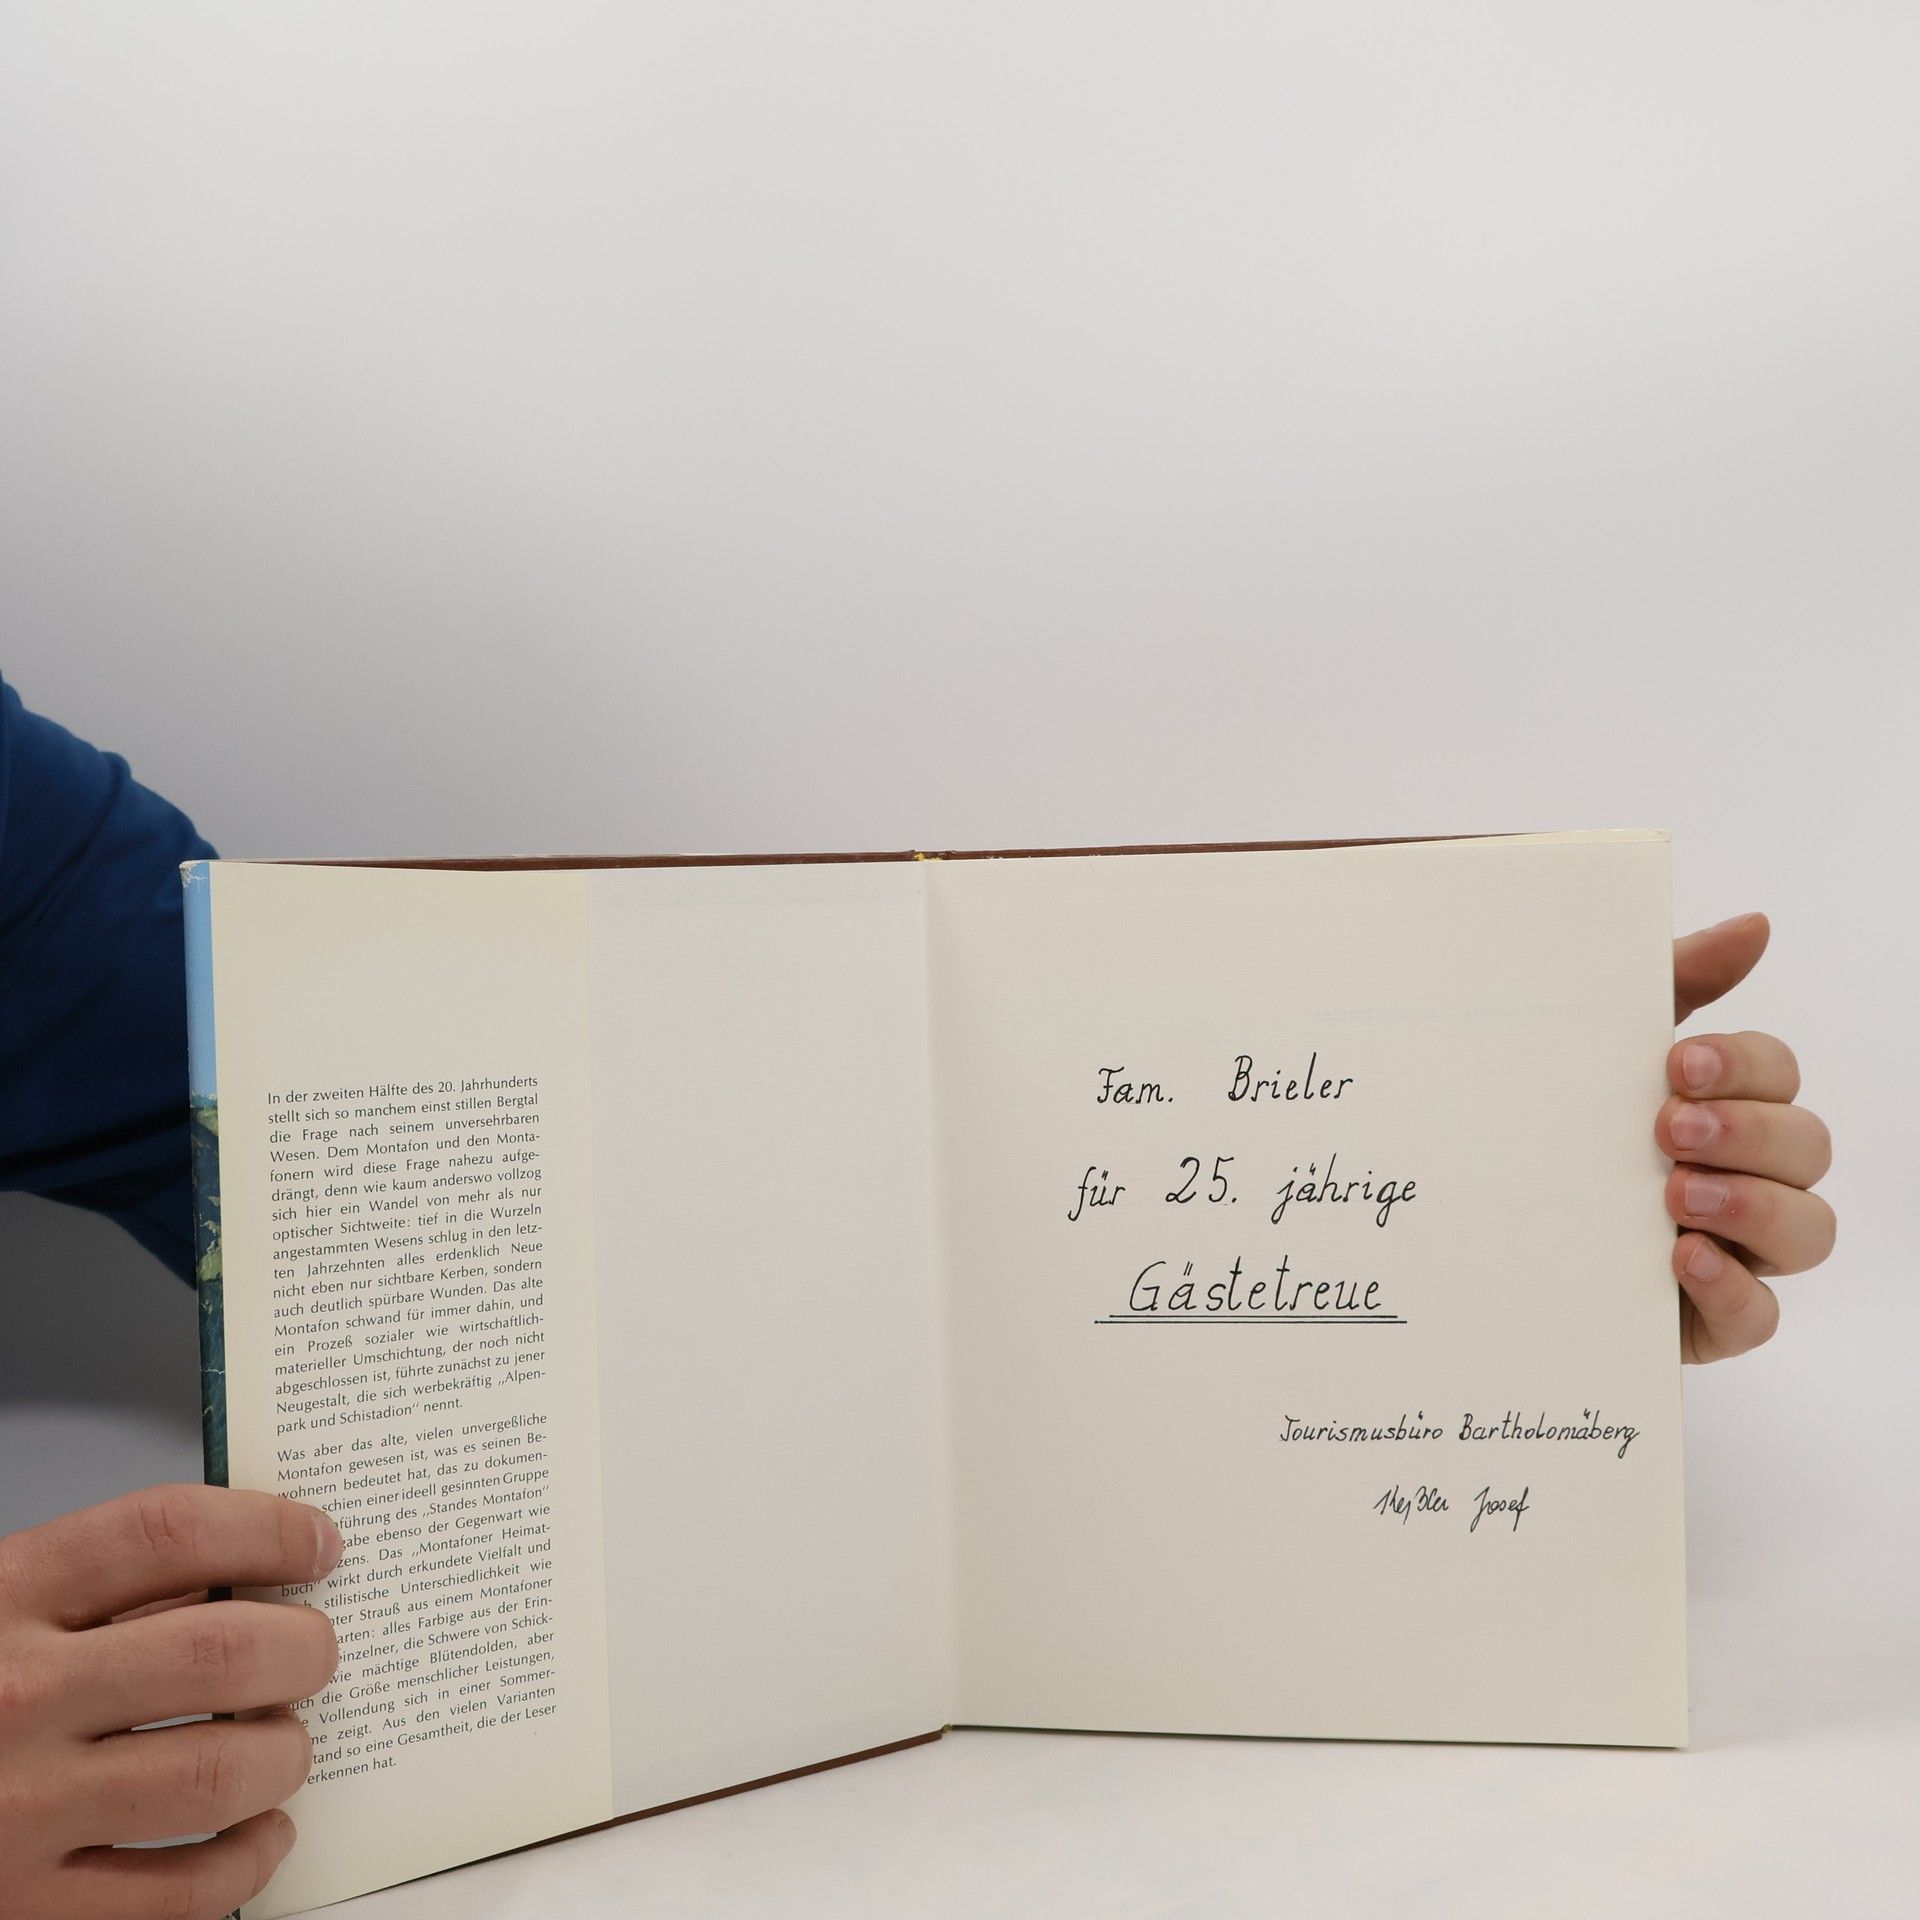 In der zweiten Hälfte des 20. Jahrhunderts
stellt sich so manchem einst stillen Bergtal
die Frage nach seinem unversehrbaren
Wesen. Dem Montafon und den Monta-
fonern wird diese Frage nahezu aufge-
drängt, denn wie kaum anderswo vollzog
sich hier ein Wandel von mehr als nur
optischer Sichtweite: tief in die Wurzeln
angestammten Wesens schlug in den letz-
ten Jahrzehnten alles erdenklich Neue
nicht eben nur sichtbare Kerben, sondern
auch deutlich spürbare Wunden. Das alte
Montafon schwand für immer dahin, und
ein Prozeß sozialer wie wirtschaftlich-
materieller Umschichtung, der noch nicht
abgeschlossen ist, führte zunächst zu jener
Neugestalt, die sich werbekräftig „Alpen-
park und Schistadion“ nennt.
Was aber das alte, vielen unvergeßliche
Montafon gewesen ist, was es seinen Be-
wohnern bedeutet hat, das zu dokumen-
schien einer ideell gesinnten Gruppe
des „Standes Montafon“
ebenso der Gegenwart wie
Das „Montafoner Heimat-
buch“ wirkt durch erkundete Vielfalt und
stilistische Unterschiedlichkeit wie
Strauß aus einem Montafoner
alles Farbige aus der Erin-
einzelner, die Schwere von Schick-
wie mächtige Blütendolden, aber
die Größe menschlicher Leistungen,
Vollendung sich in einer Sommer-
zeigt. Aus den vielen Varianten
so eine Gesamtheit, die der Leser
erkennen hat.
Fam. Brieler
für 25. jährige
Gästetreue
Tourismusbüro Bartholomäberg
Keßler Josef